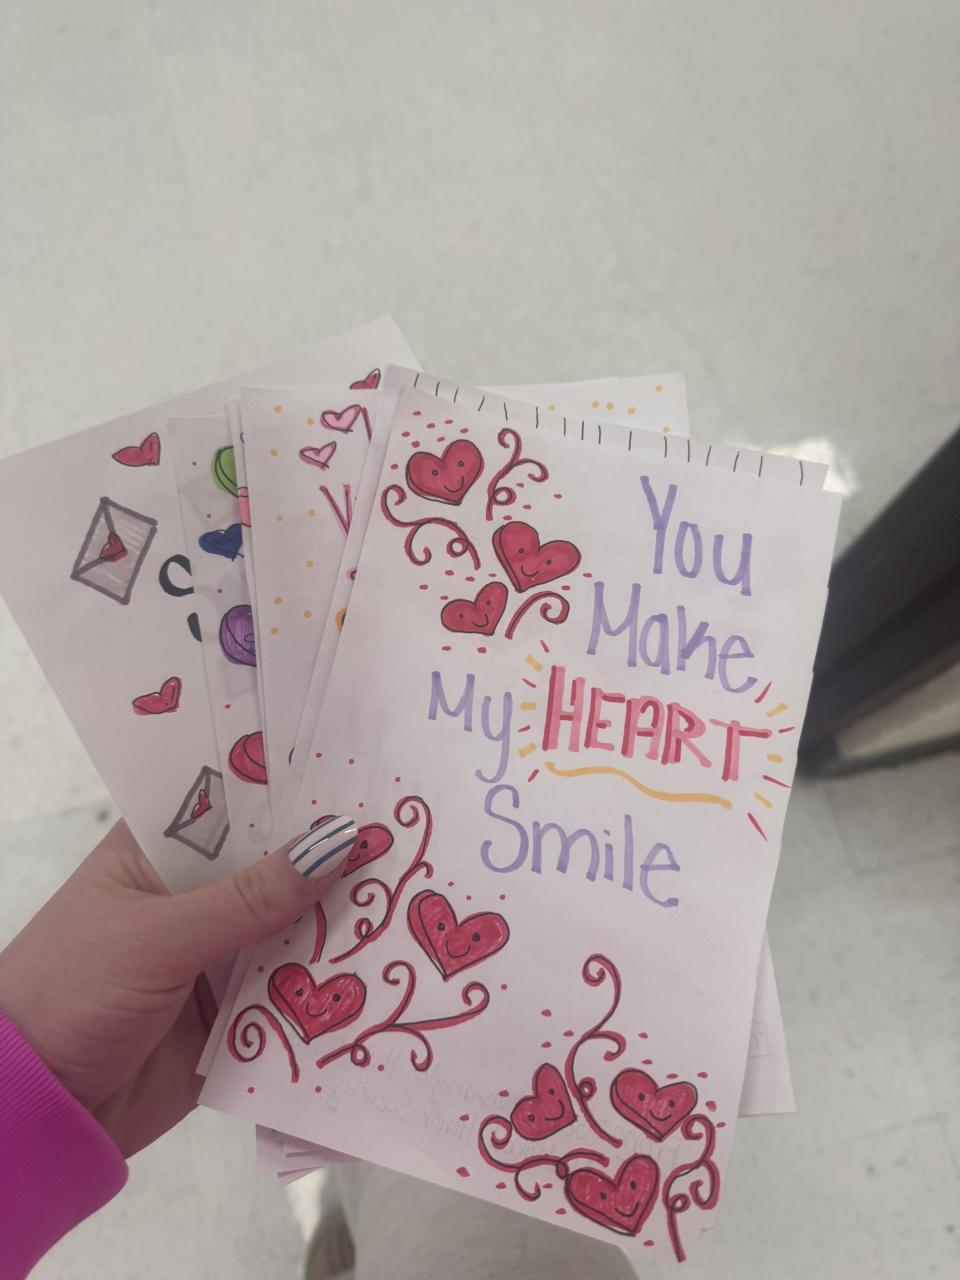 You
Make
My HEART
Smile